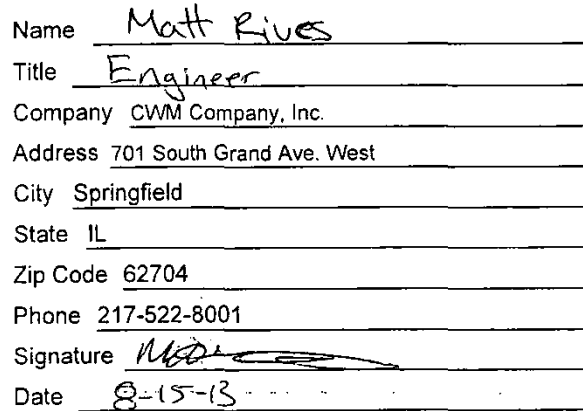 Name Matt Rives
Title Engineer
Company CWM Company, Inc.
Address 701 South Grand Ave. West
City Springfield
State IL
Zip Code 62704
Phone 217-522-8001
Signature
Date 8-15-13